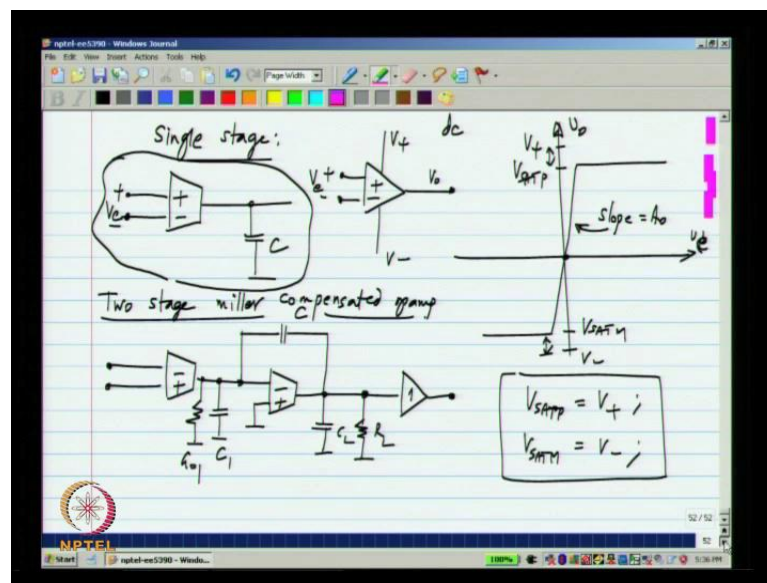 nptel-ee5390 - Windows Journal
File Edit View Insert Actions Tools Help
Page Width
B I
Single stage:
+
Ve
-
+
-
C
V+
dc
Ve
+
-
+
-
Vo
V-
Vo
V+
VSATP
slope = Ao
Ve
VSATM
V-
Two stage miller compensated opamp
C
-
+
-
+
1
Go1
C1
CL
RL
VSATP = V+ ;
VSATM = V- ;
NPTEL
52 / 52
52
Start
nptel-ee5390 - Windo...
100%
5:36 PM